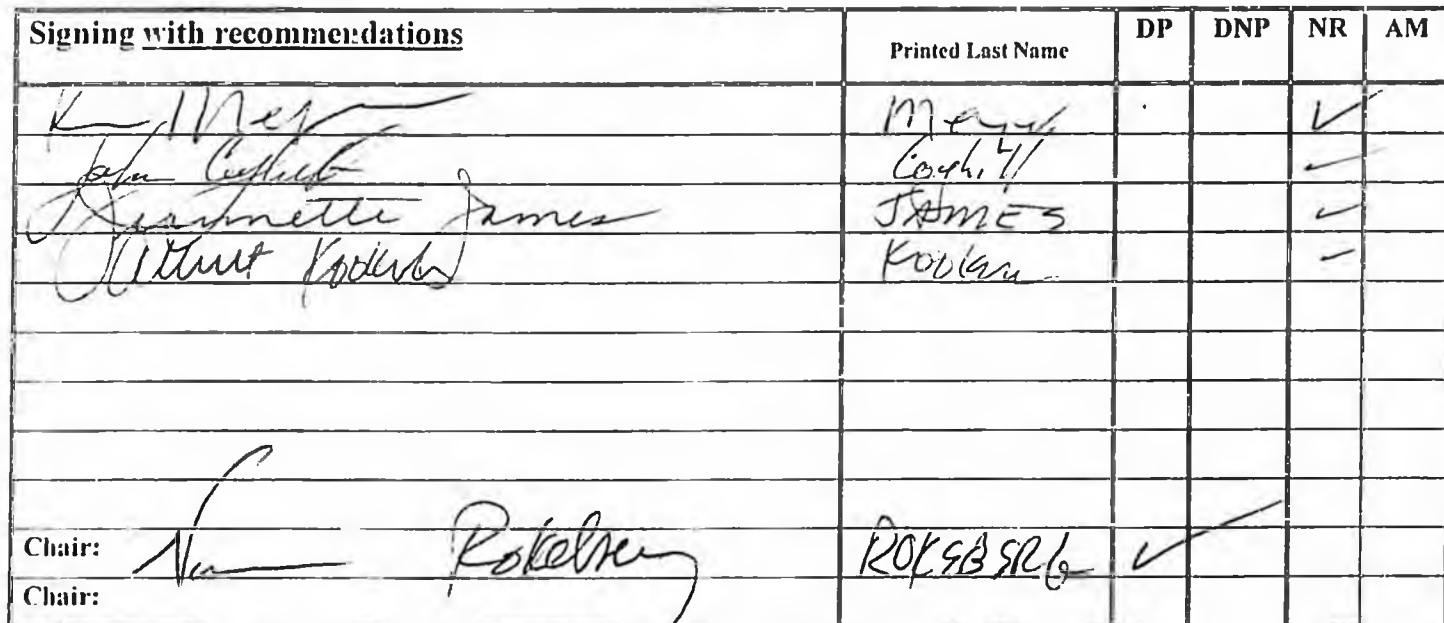 Signing with recommendations Printed Last Name DP DNP NR AM
K Meyer Meyer ✓
John Coghill Coghill ✓
Jeannette James JAMES ✓
Albert Kookesh Kookesh ✓
Chair: Norman Rokeberg ROKEBERG ✓
Chair: